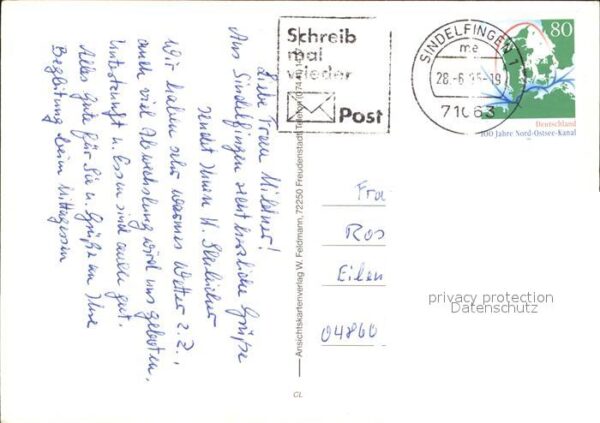 Liebe Frau Mildner!
Aus Sindelfingen recht herzliche Grüße
sendet Ihnen H.
Wir haben sehr warmes Wetter z. Z.,
auch viel Abwechslung wird uns geboten,
Unterkunft u. Essen sind auch gut.
Alles Gute für Sie u. Grüße an Ihre
Begleitung beim Mittagessen
Ansichtskartenverlag W. Feldmann, 72250 Freudenstadt, Telefon
CL
Schreib
mal
wieder
Post
SINDELFINGEN 1
me
28.-6.95-19
71063
80
Deutschland
100 Jahre Nord-Ostsee-Kanal
Fra
Ros
Eilen
04860
privacy protection
Datenschutz